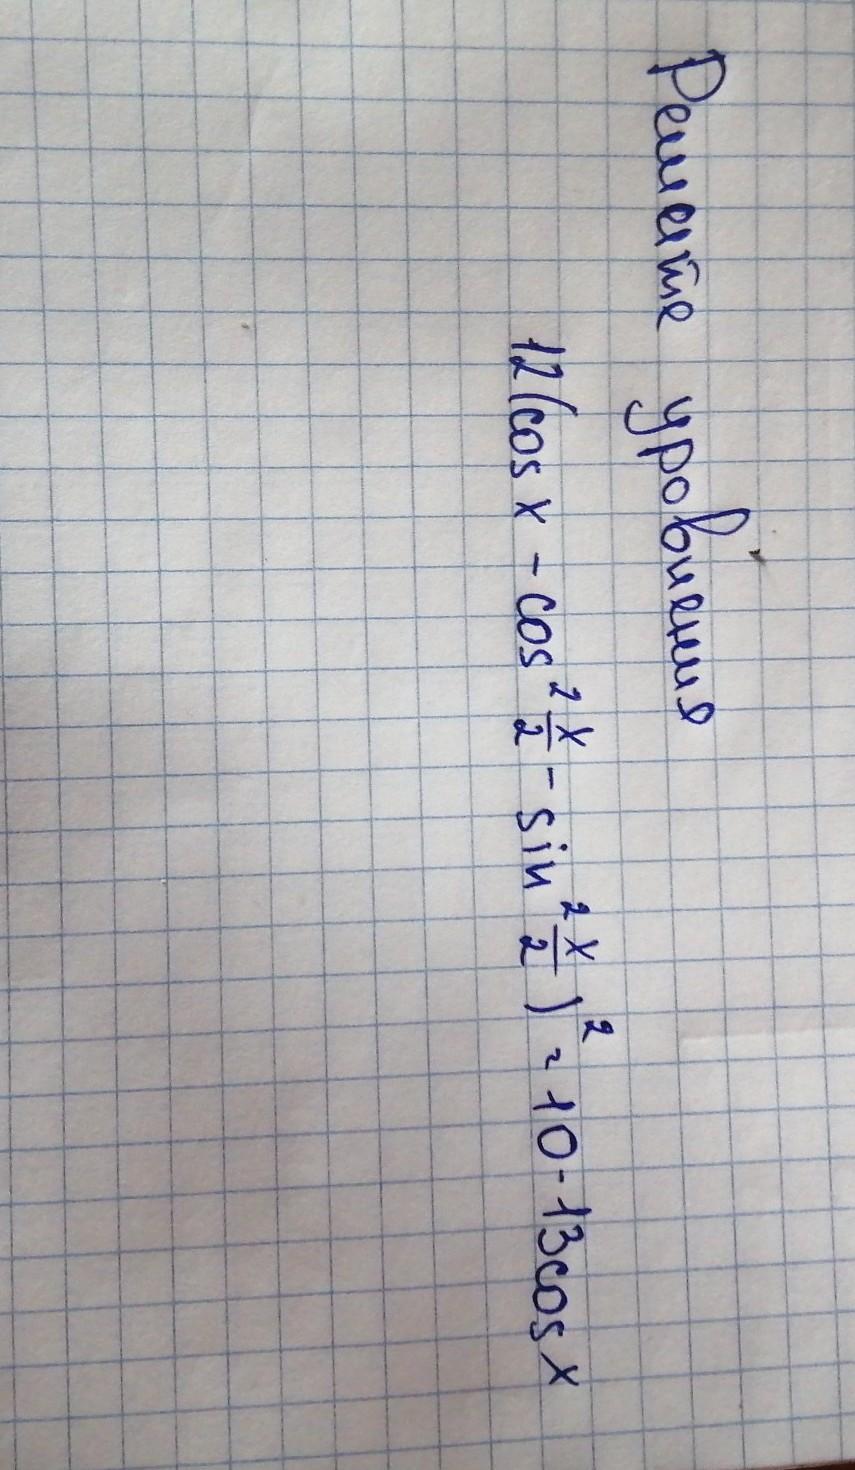 Решите уровнения
12(cos x - cos² x/2 - sin² x/2)² = 10 - 13cos x